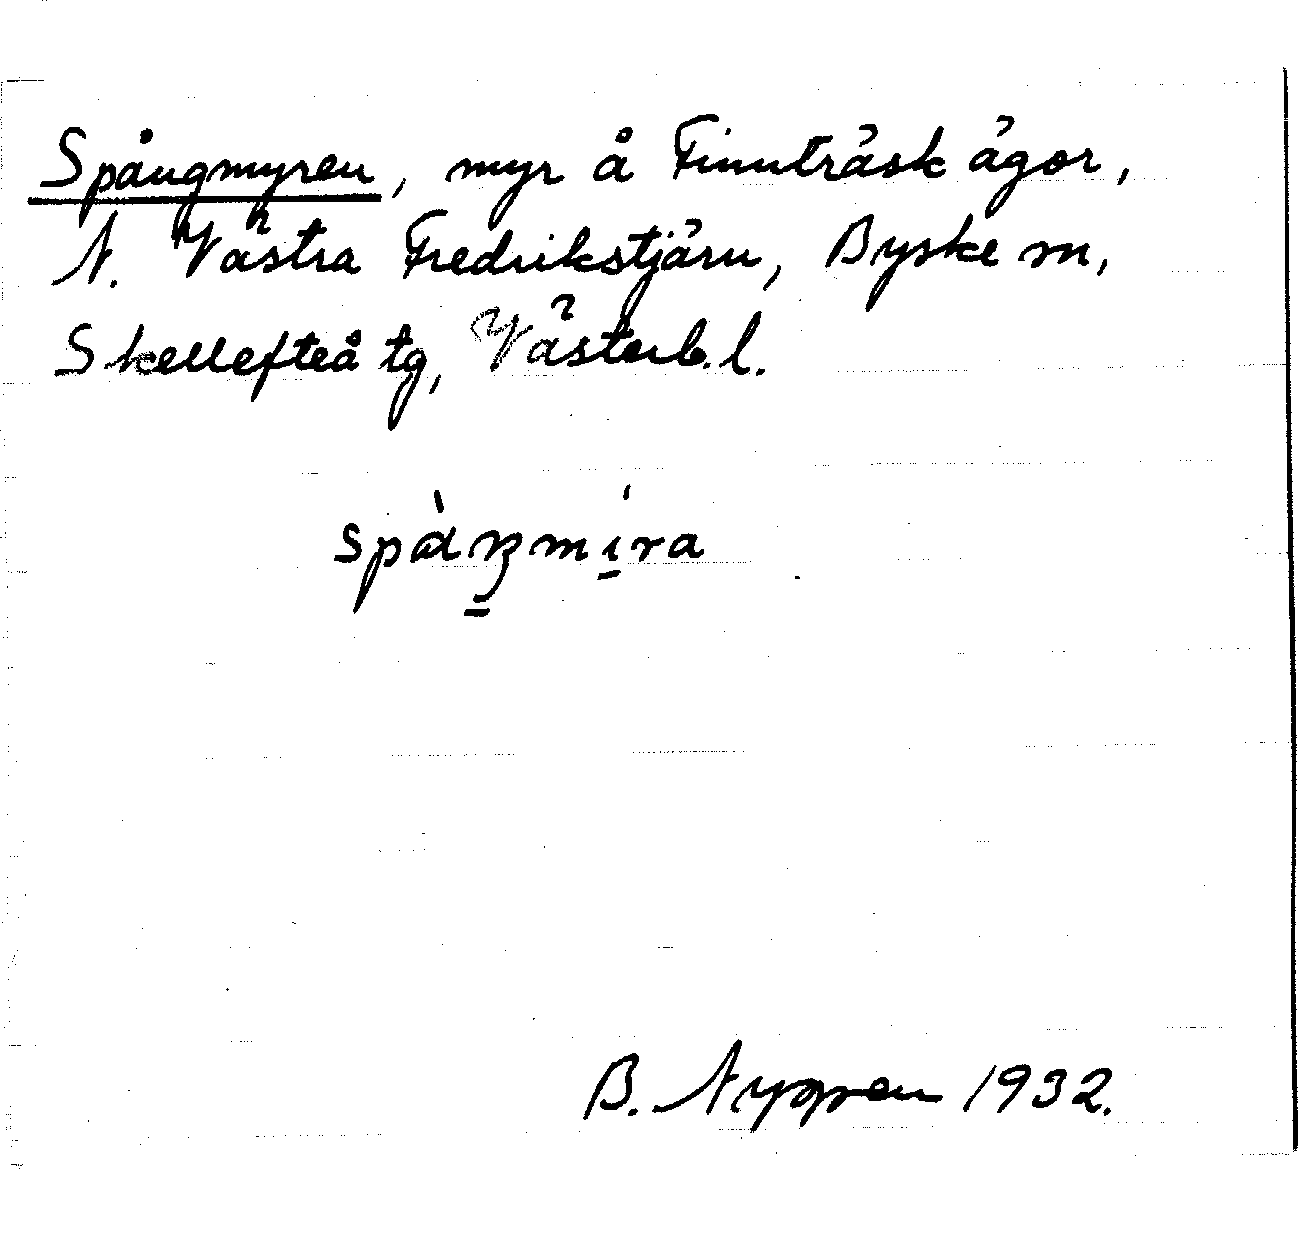 Spångmyren, myr å Finnträsk ägor,
N. Västra Fredrikstjärn, Byske sn,
Skellefteå tg, Västerb. l.
B. Nygren 1932.